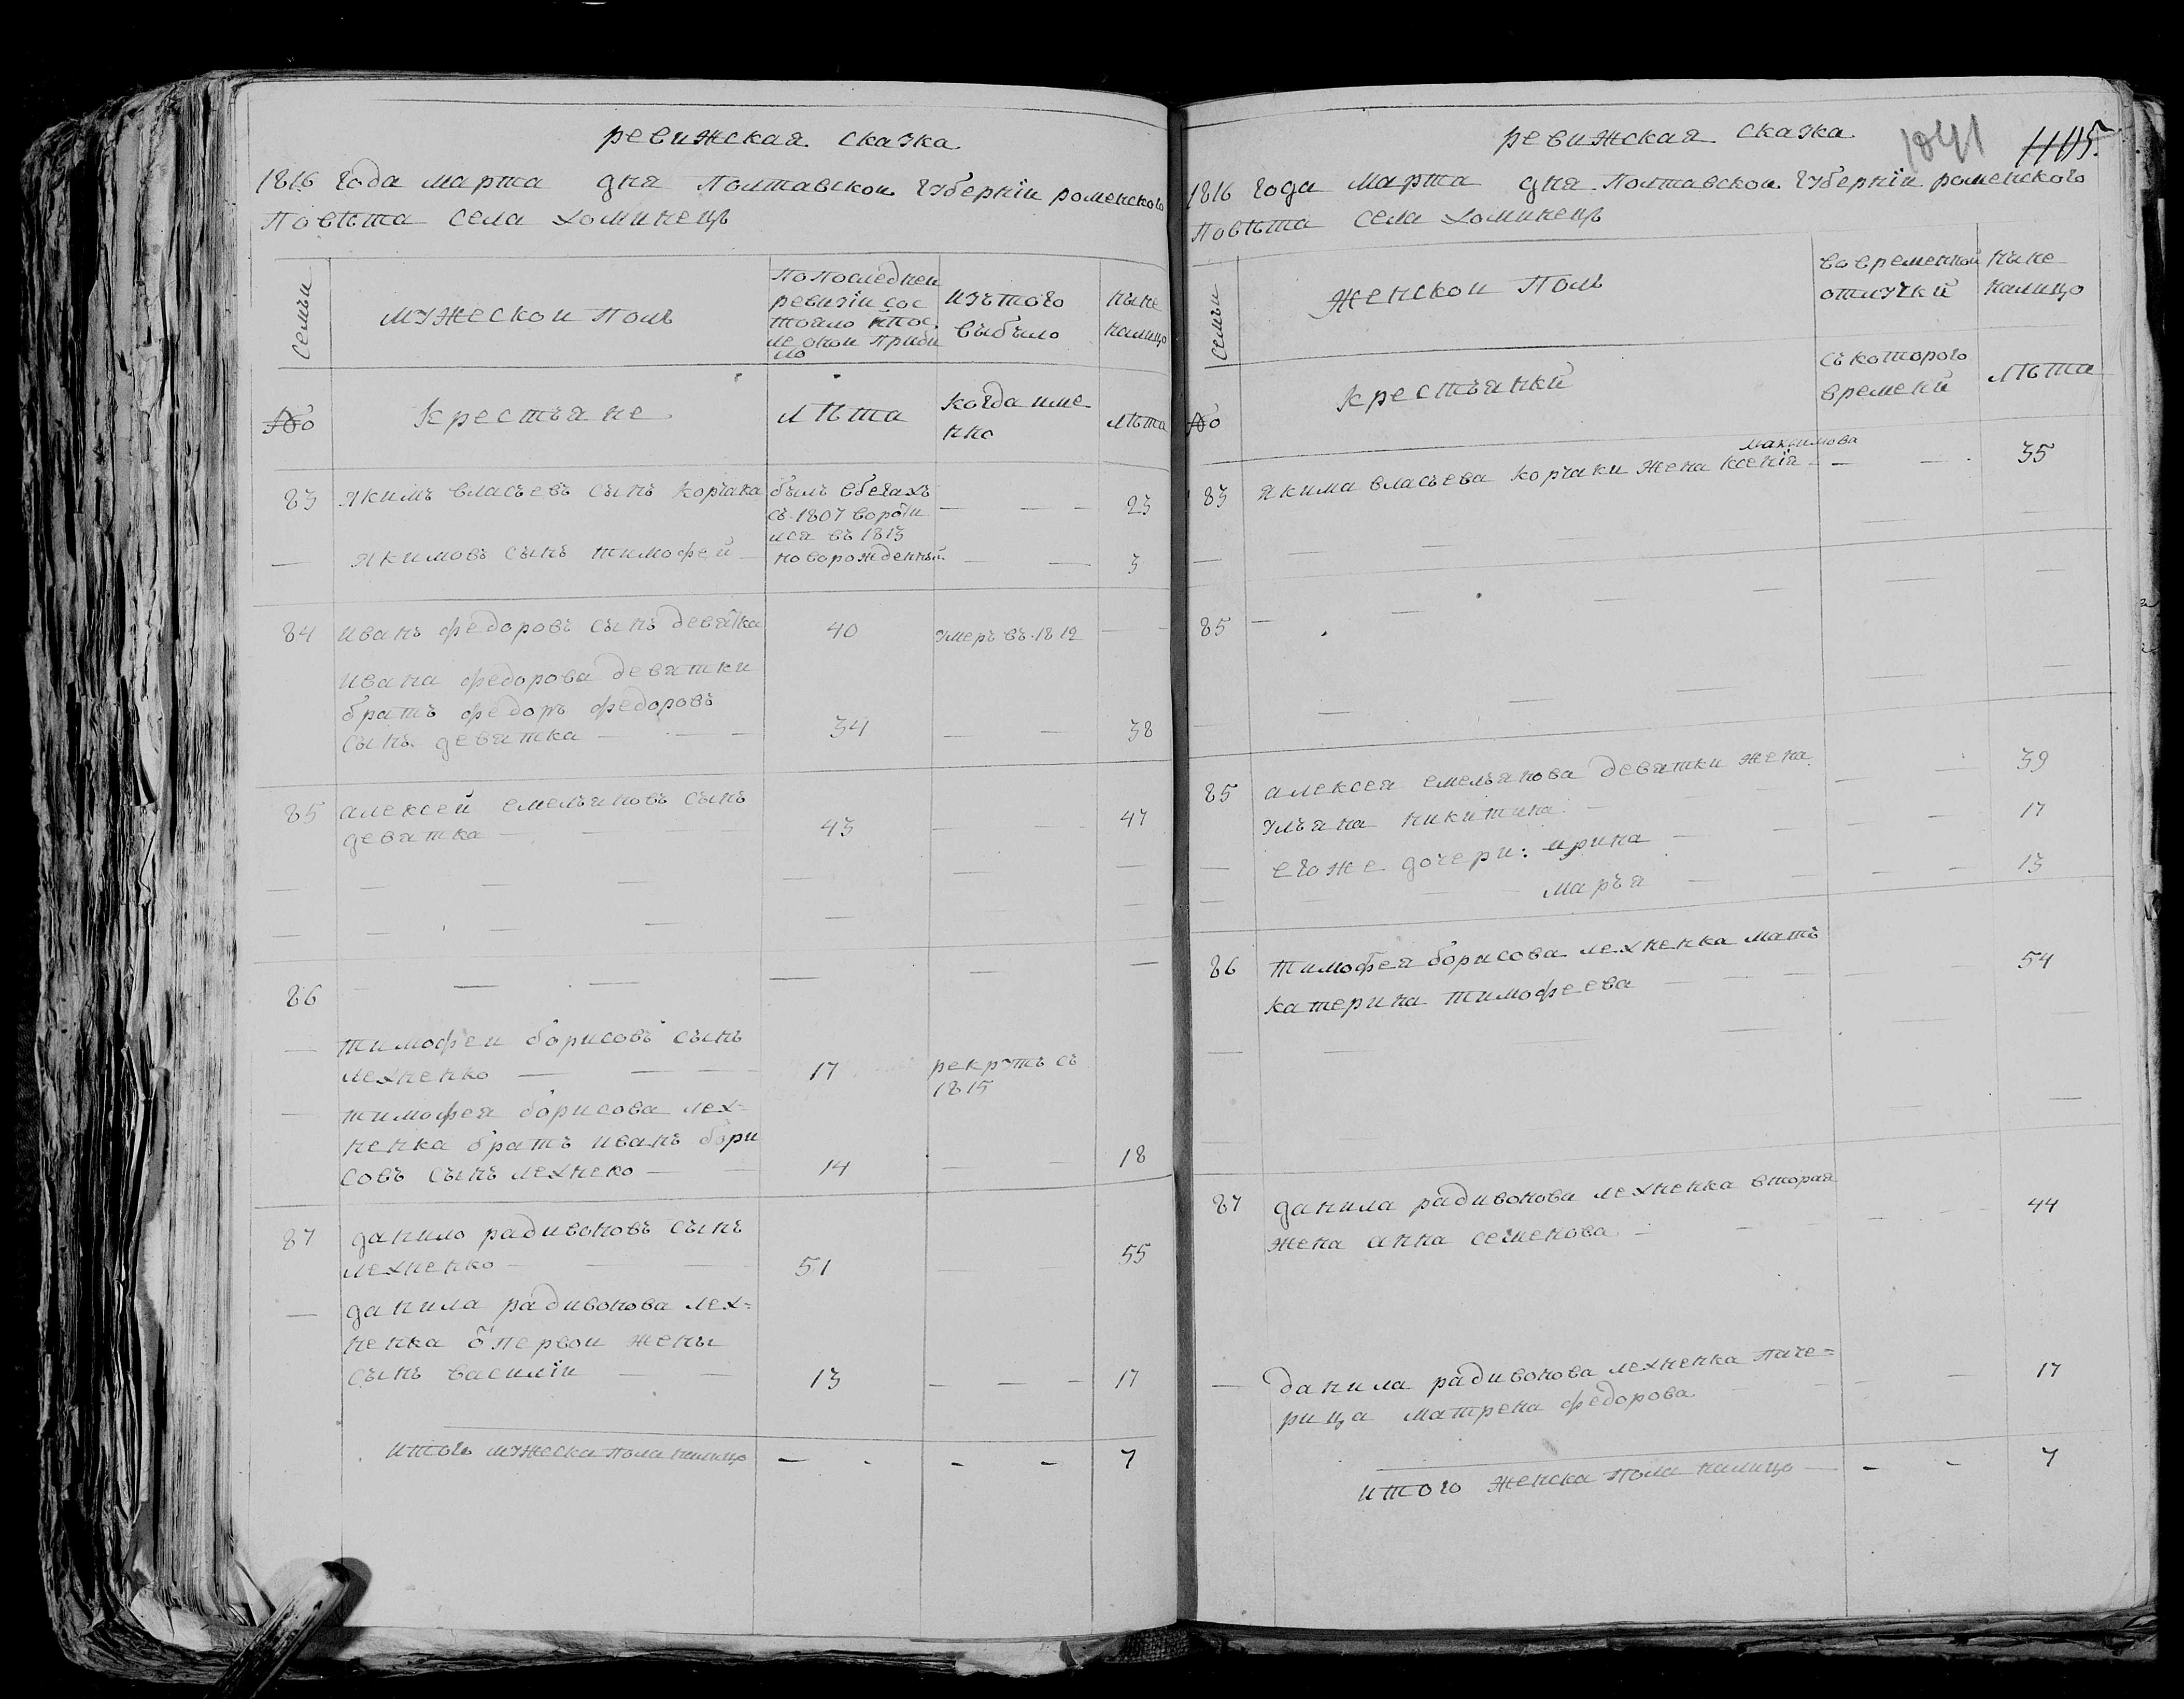 ревижская сказка
1816 года марта дня Полтавской губернїи роменского
Повѣта села хоминецъ
семьи
мужеской Полъ
По последней
ревизїи сос
тояло и пос
ле оной прибы
ло
изъ того
выбыло
ныне
налицо
№
Крестьяне
лѣта
когда име
нно
лѣта
83
якимъ власьевъ сынъ корчака
былъ вбегахъ
съ 1807 вороти
лся въ 1813
— — —
23
—
якимовъ сынъ тимофей
новорожденный
— —
3
84
иванъ федоровъ сынъ девятка
40
умеръ въ 1812
— —
ивана федорова девятки
братъ федоръ федоровъ
сынъ девятка — — —
34
— —
38
85
алексей емельяновъ сынъ
девятка — —
43
— —
47
86
тимофей борисовъ сынъ
лехненко — — —
17
рекрутъ съ
1815
—
тимофея борисова лех-
ненка братъ иванъ бори
совъ сынъ лехнеко — —
14
— —
18
87
данило радивоновъ сынъ
лехненко — — —
51
— —
55
—
данила радивонова лех-
ненка о первой жены
сынъ василїи — —
13
— — —
17
итого мужеска пола налицо
— - - -
7
ревижская сказка
1041
1105
1816 года марта дня Полтавской губернїи роменского
Повѣта села хоминецъ
семьи
женской Полъ
во временной
отлучки
ныне
налицо
№
крестьянки
съ которого
времени
лѣта
максимова
83
якима власьева корчаки жена ксенїя
— —
35
85
85
алексея емельянова девятки жена
ульяна никитина
— —
39
—
егоже дочери: ирина
— —
17
—
марья
— —
13
86
тимофея борисова лехненка мать
катерина тимофеева
— —
54
87
данила радивонова лехненка вторая
жена анна семенова
44
—
данила радивонова лехненка паче=
рица матрена федорова
— —
17
итого женска пола налицо
— - -
7